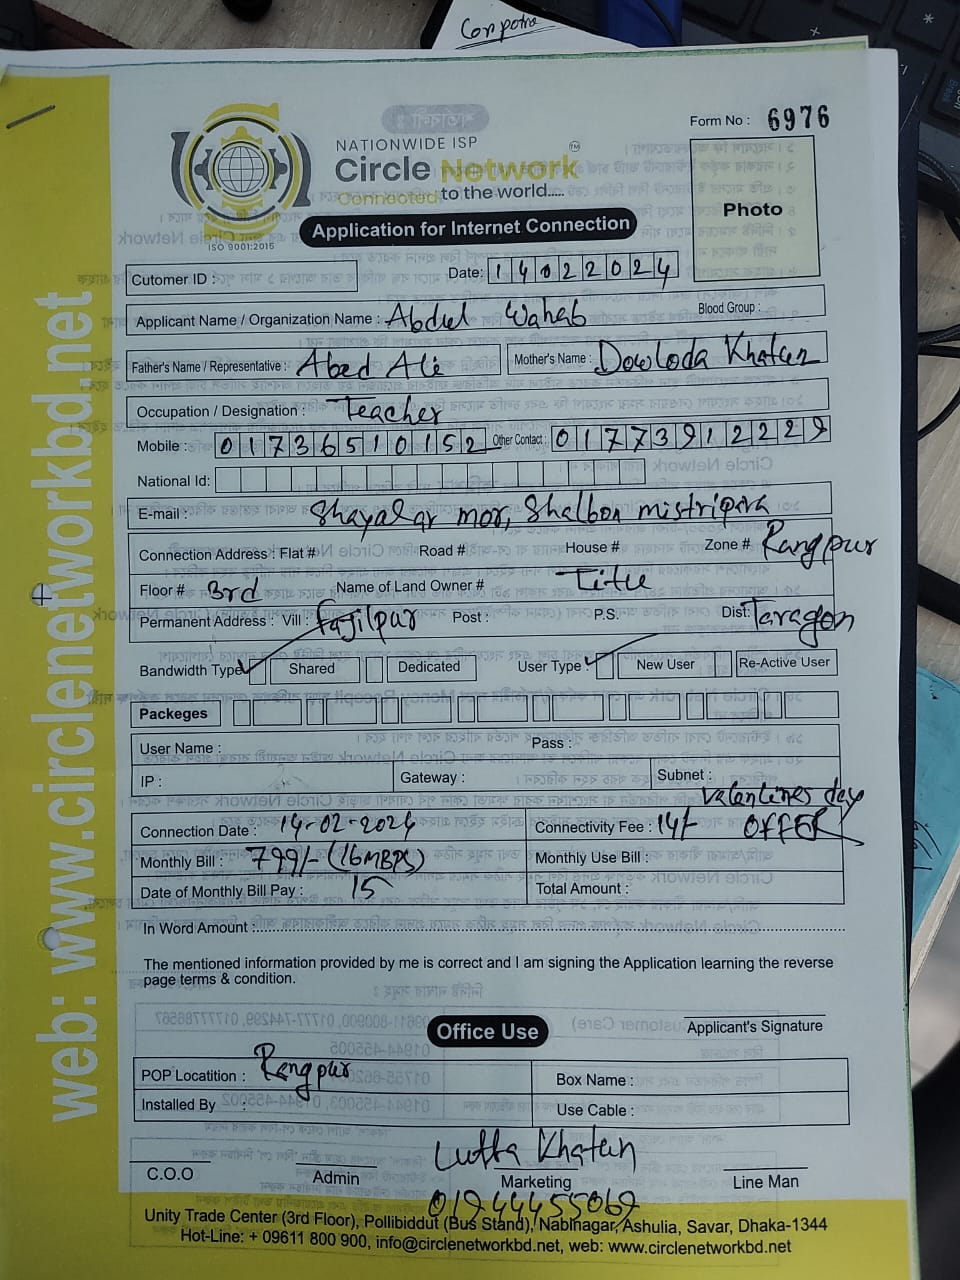 Conpotra
Form No : 6976
NATIONWIDE ISP
Circle Network TM
Connected to the world.....
ISO 9001:2015
Photo
Application for Internet Connection
Cutomer ID :
Date: 14022024
Applicant Name / Organization Name : Abdul Wahab
Blood Group :
Father's Name / Representative : Abed Ali
Mother's Name : Dowloda Khatun
Occupation / Designation : Teacher
Mobile : 01736510152 Other Contact : 01773912229
National Id:
E-mail : Shayalar mor, Shalbon mistripara
Connection Address : Flat # Road # House # Zone # Rangpur
Floor # 3rd Name of Land Owner # Titu
Permanent Address : Vill : Fajilpur Post : P.S. Dist: Taragon
Bandwidth Type Shared Dedicated User Type New User Re-Active User
Packeges
User Name : Pass :
IP : Gateway : Subnet :
valentines day
Connection Date : 14-02-2024 Connectivity Fee : 14/- OFFER
Monthly Bill : 799/- (16MBPS) Monthly Use Bill :
Date of Monthly Bill Pay : 15 Total Amount :
In Word Amount :
The mentioned information provided by me is correct and I am signing the Application learning the reverse
page terms & condition.
Office Use
Applicant's Signature
POP Locatition : Rangpur Box Name :
Installed By : Use Cable :
Lutfa Khatun
C.O.O Admin Marketing Line Man
01944455069
Unity Trade Center (3rd Floor), Pollibiddut (Bus Stand), Nabinagar, Ashulia, Savar, Dhaka-1344
Hot-Line: + 09611 800 900, info@circlenetworkbd.net, web: www.circlenetworkbd.net
web: www.circlenetworkbd.net